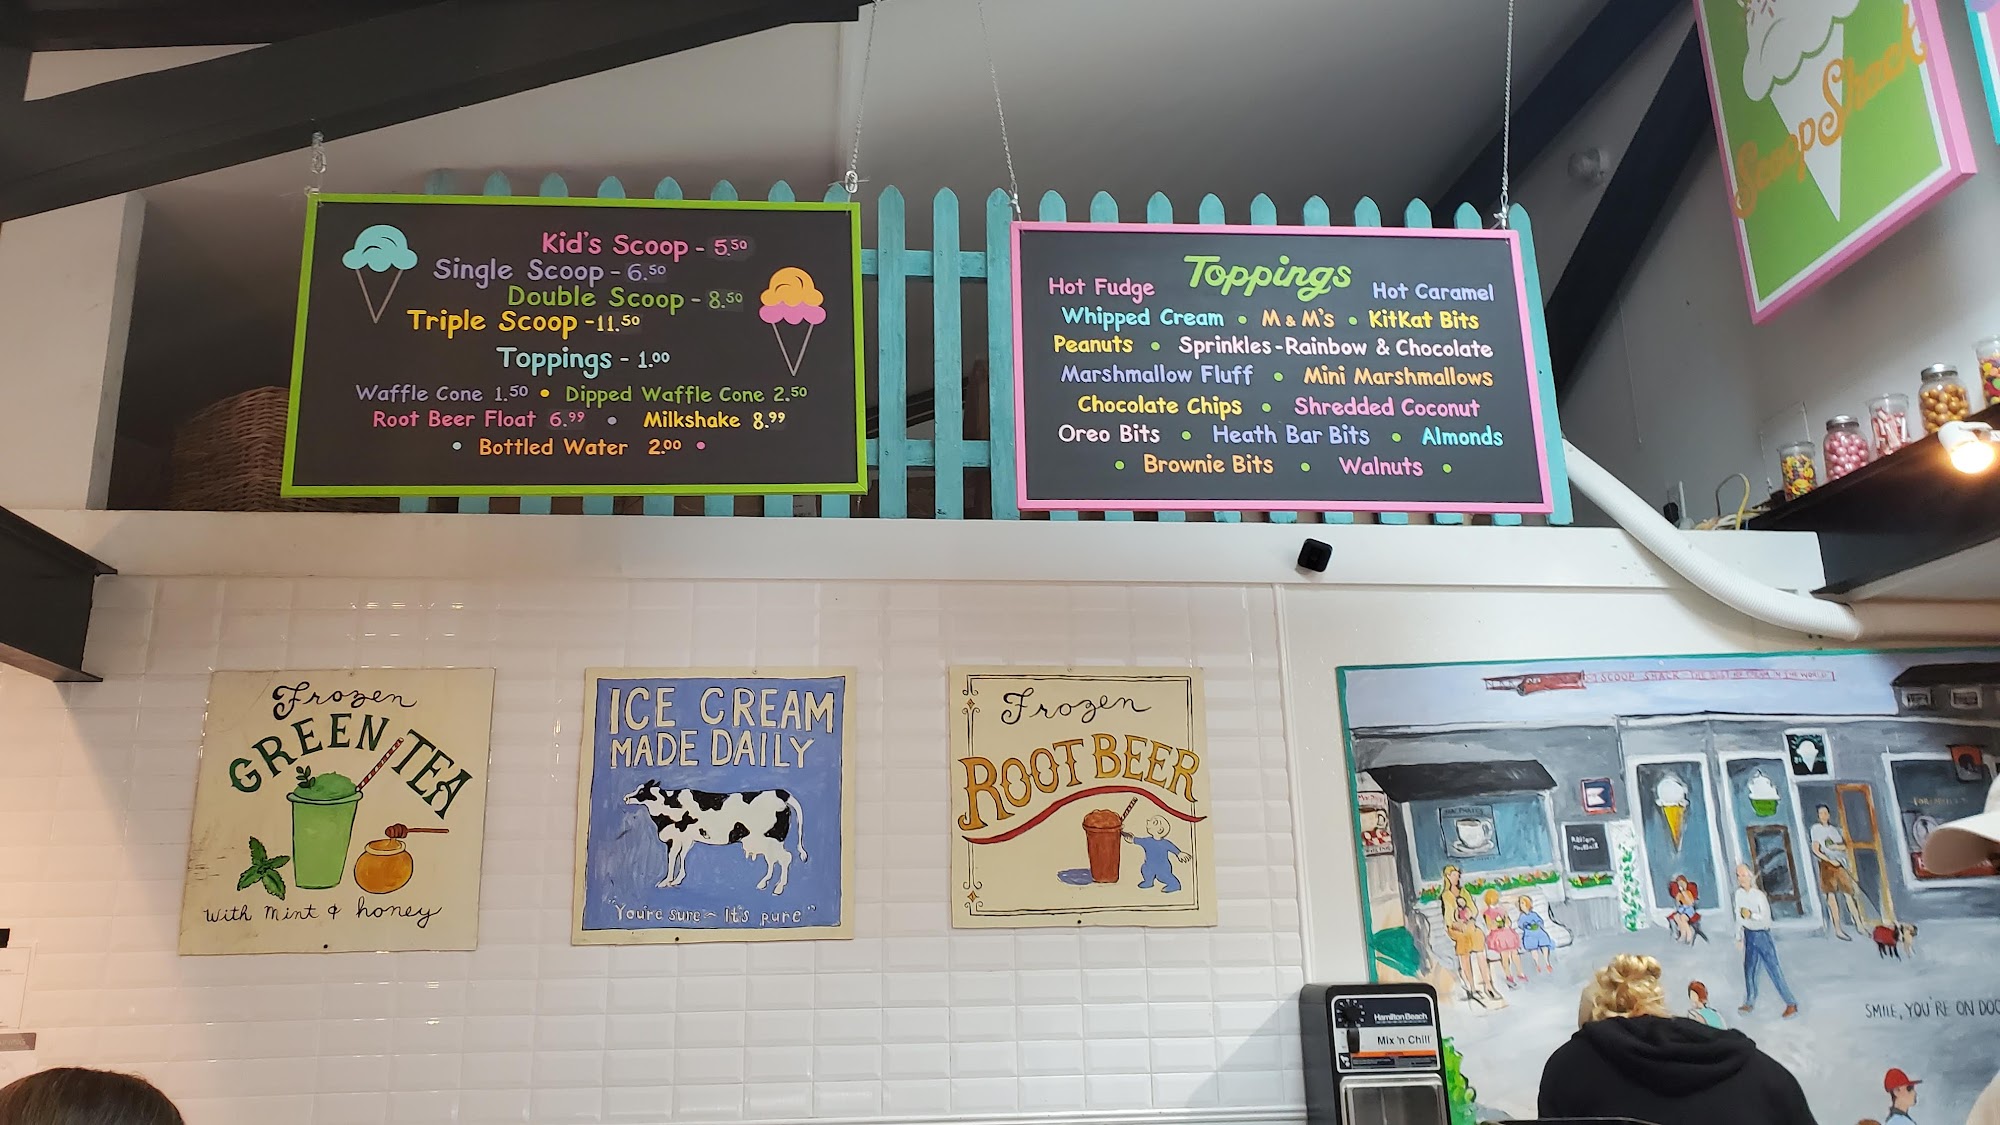 Kid's Scoop - 5.50
Single Scoop - 6.50
Double Scoop - 8.50
Triple Scoop - 11.50
Toppings - 1.00
Waffle Cone 1.50 • Dipped Waffle Cone 2.50
Root Beer Float 6.99 • Milkshake 8.99
• Bottled Water 2.00 •
Toppings
Hot Fudge Hot Caramel
Whipped Cream • M & M's • KitKat Bits
Peanuts • Sprinkles - Rainbow & Chocolate
Marshmallow Fluff • Mini Marshmallows
Chocolate Chips • Shredded Coconut
Oreo Bits • Heath Bar Bits • Almonds
• Brownie Bits • Walnuts •
Scoop Shack
Frozen
GREEN TEA
with mint & honey
ICE CREAM
MADE DAILY
"You're sure ~ It's pure"
Frozen
ROOT BEER
SCOOP SHACK THE BEST ICE CREAM IN THE WORLD
SMILE, YOU'RE ON
Hamilton Beach
Mix 'n Chill